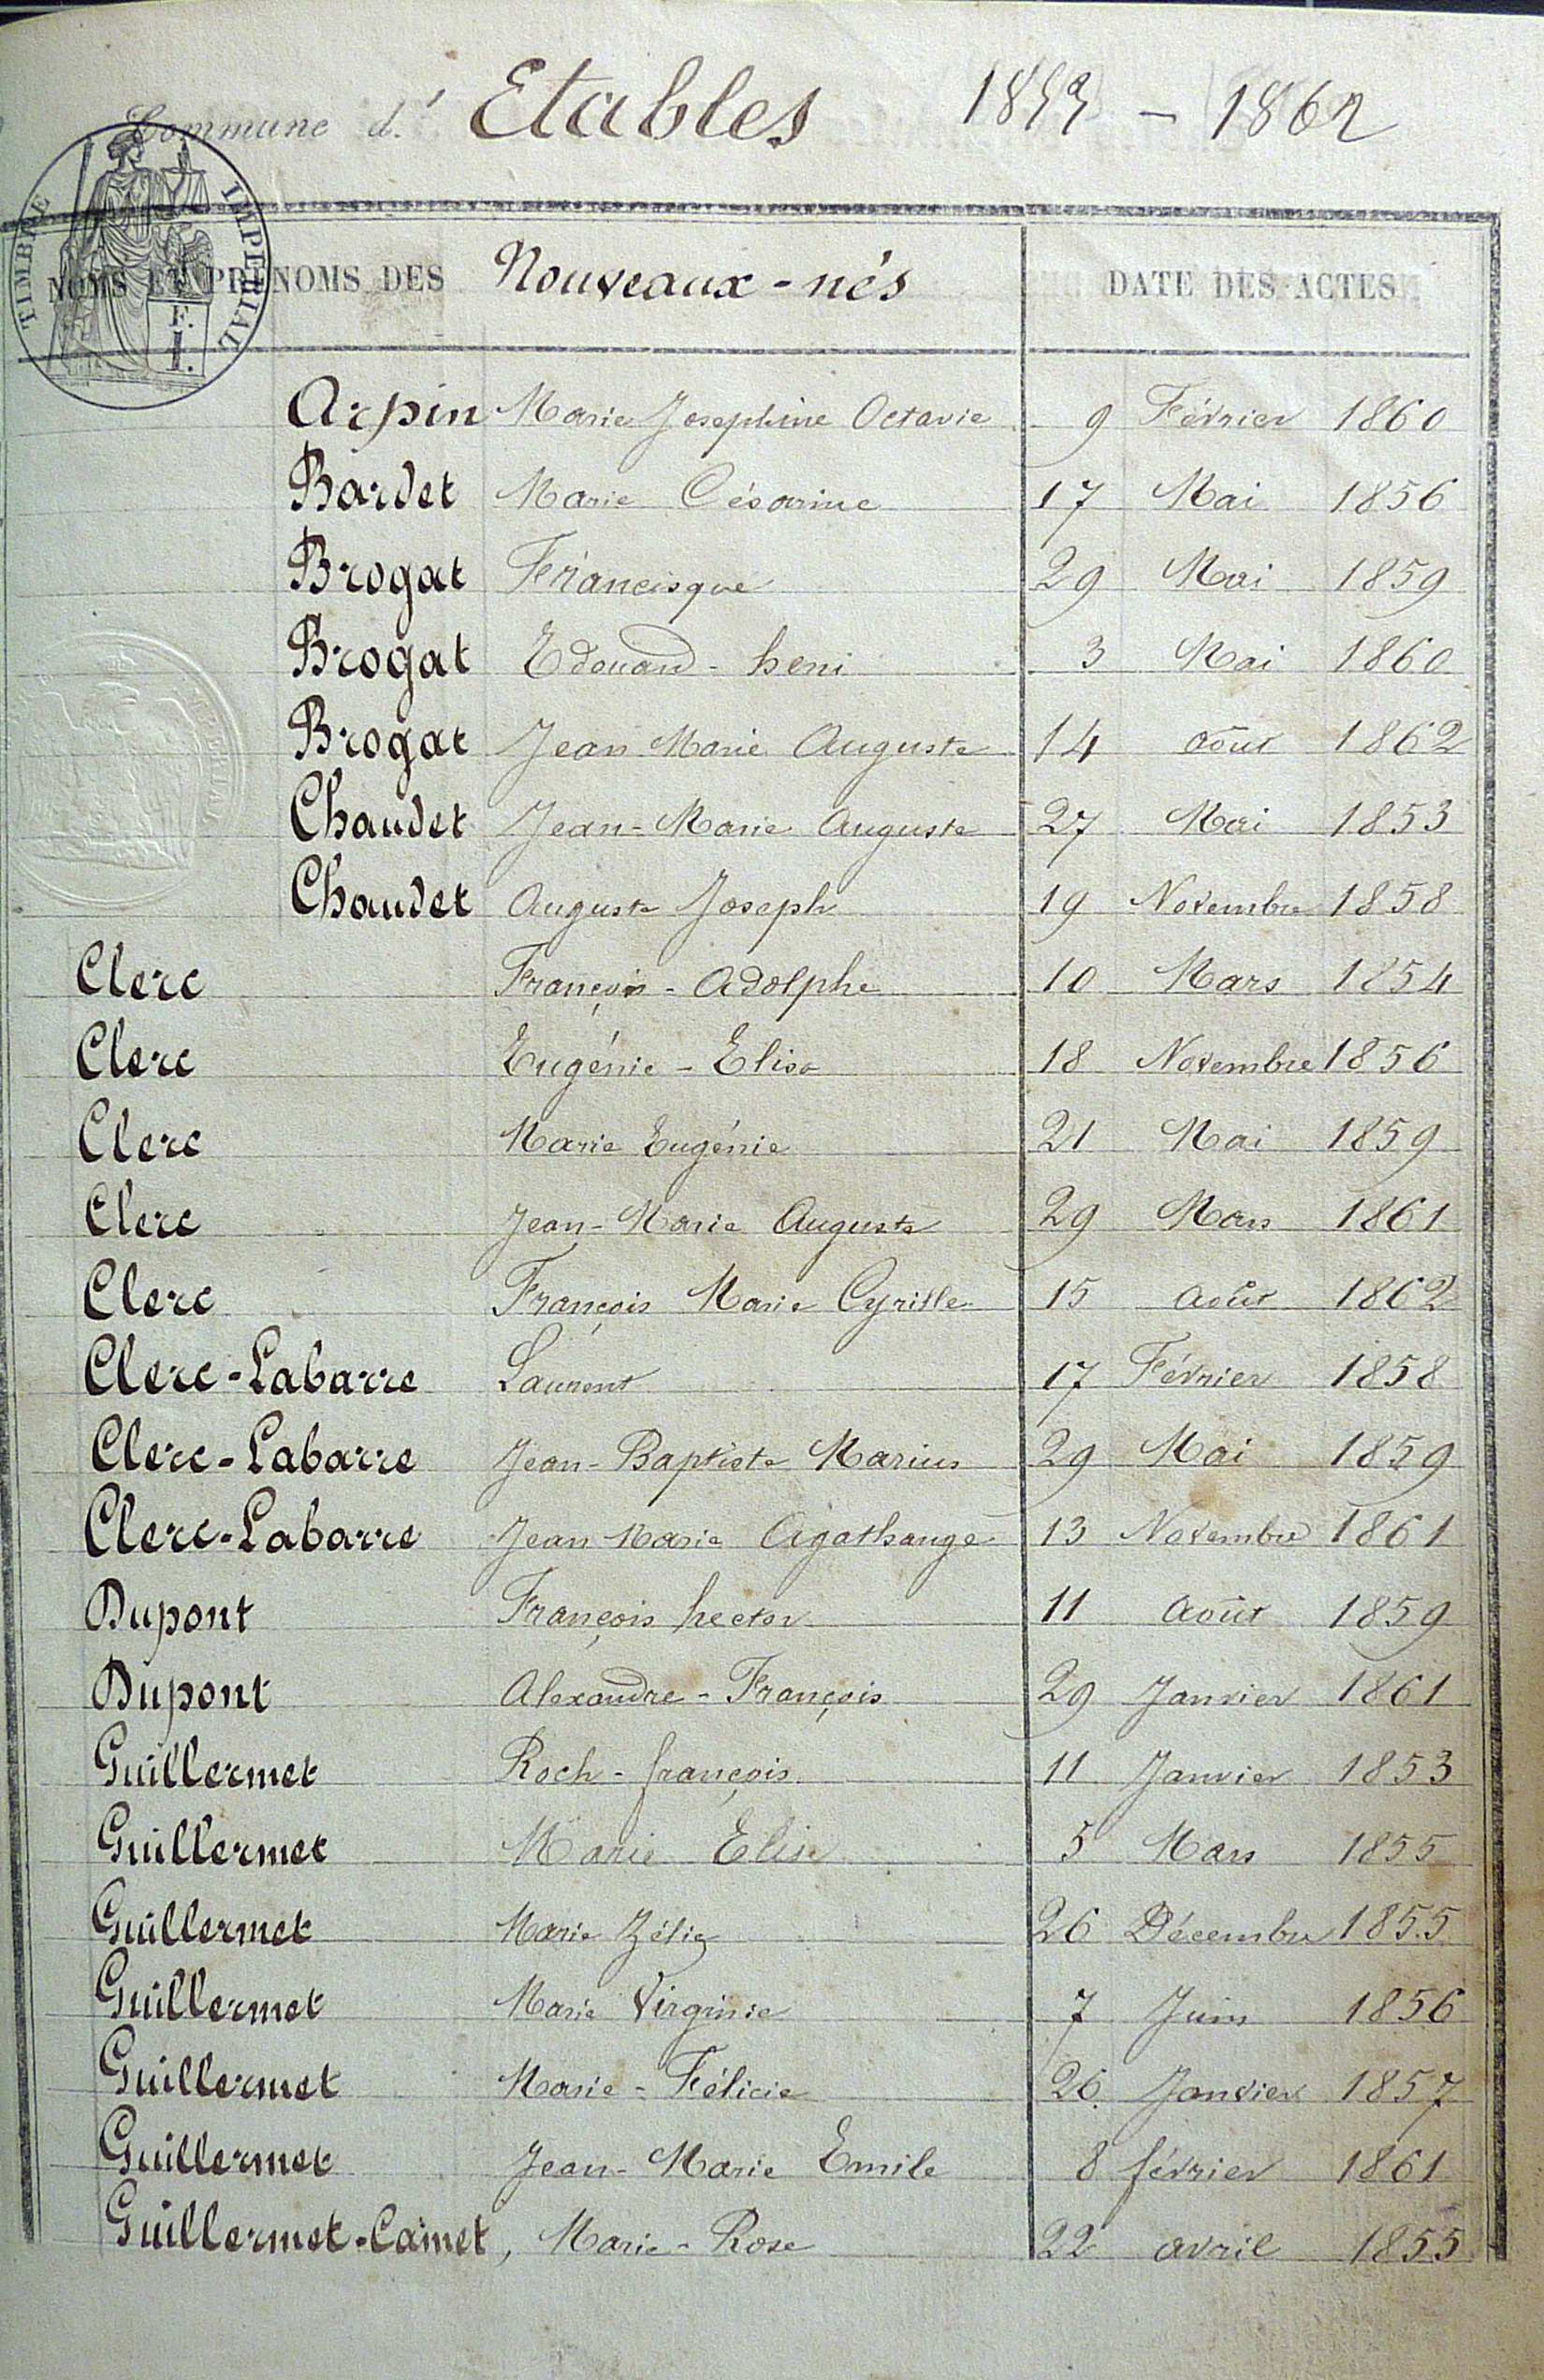 Commune d' Etables 1853 - 1862
TIMBRE IMPERIAL
F.
1.
NOMS ET PRÉNOMS DES Nouveaux-nés DATE DES ACTES
Arpin Marie Josephine Octavie 9 Février 1860
Bardet Marie Césarine 17 Mai 1856
Brogat Francisque 29 Mai 1859
Brogat Edouard-heni 3 Mai 1860
Brogat Jean Marie Auguste 14 août 1862
Chaudet Jean-Marie Auguste 27 Mai 1853
Chaudet Auguste Joseph 19 Novembre 1858
Clerc François-Adolphe 10 Mars 1854
Clerc Eugénie-Elisa 18 Novembre 1856
Clerc Marie Eugénie 21 Mai 1859
Clerc Jean-Marie Auguste 29 Mars 1861
Clerc François Marie Cyrille 15 août 1862
Clerc-Labarre Laurent 17 Février 1858
Clerc-Labarre Jean-Baptiste Marius 29 Mai 1859
Clerc-Labarre Jean Marie Agathange 13 Novembre 1861
Dupont François hector 11 août 1859
Dupont Alexandre-François 29 Janvier 1861
Guillermet Roch-françois 11 Janvier 1853
Guillermet Marie Elise 5 Mars 1855
Guillermet Marie Zélie 26 Décembre 1855
Guillermet Marie Virginie 7 Juin 1856
Guillermet Marie-Félicie 26 Janvier 1857
Guillermet Jean-Marie Emile 8 février 1861
Guillermet-Camet, Marie-Rose 22 avril 1855